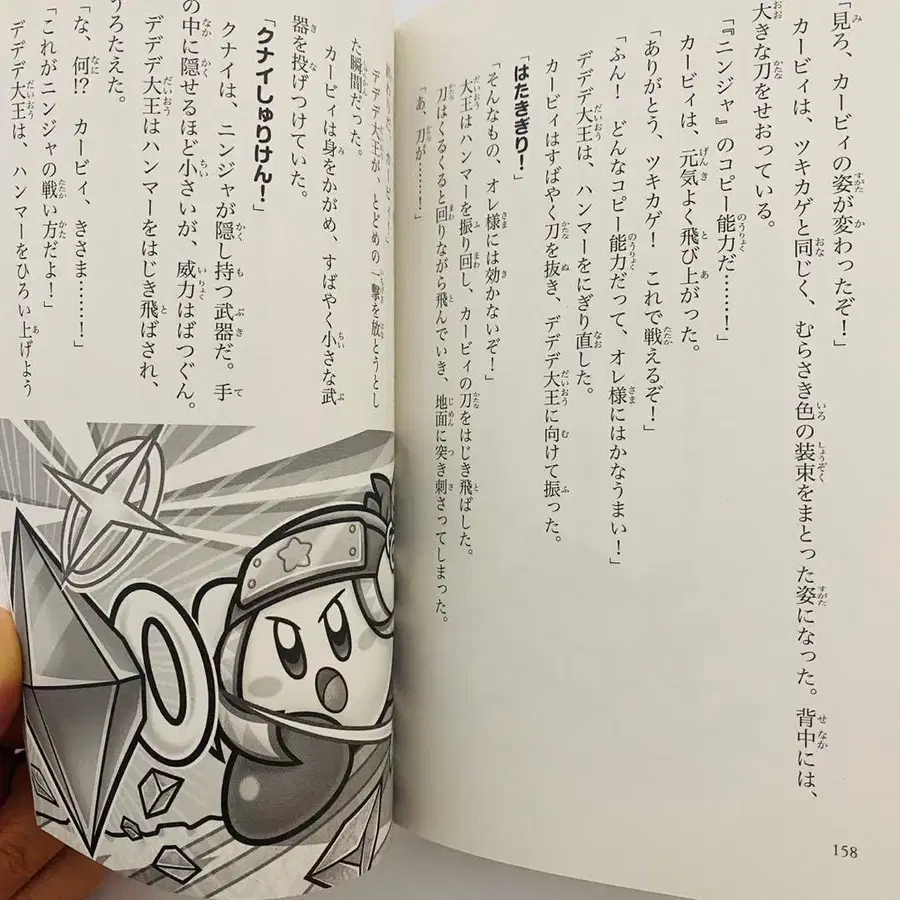 「見ろ、カービィの姿が変わったぞ！」
カービィは、ツキカゲと同じく、むらさき色の装束をまとった姿になった。背中には、
大きな刀をせおっている。
「『ニンジャ』のコピー能力だ……！」
カービィは、元気よく飛び上がった。
「ありがとう、ツキカゲ！　これで戦えるぞ！」
「ふん！　どんなコピー能力だって、オレ様にはかなうまい！」
デデデ大王は、ハンマーをにぎり直した。
カービィはすばやく刀を抜き、デデデ大王に向けて振った。
「はたきぎり！」
「そんなもの、オレ様には効かないぞ！」
大王はハンマーを振り回し、カービィの刀をはじき飛ばした。
刀はくるくると回りながら飛んでいき、地面に突き刺さってしまった。
「あ、刀が……！」
カービィ！」
デデデ大王が、とどめの一撃を放とうとし
た瞬間だった。
カービィは身をかがめ、すばやく小さな武
器を投げつけていた。
「クナイしゅりけん！」
クナイは、ニンジャが隠し持つ武器だ。手
の中に隠せるほど小さいが、威力はばつぐん。
デデデ大王はハンマーをはじき飛ばされ、
うろたえた。
「な、何!?　カービィ、きさま……！」
「これがニンジャの戦い方だよ！」
デデデ大王は、ハンマーをひろい上げよう
158